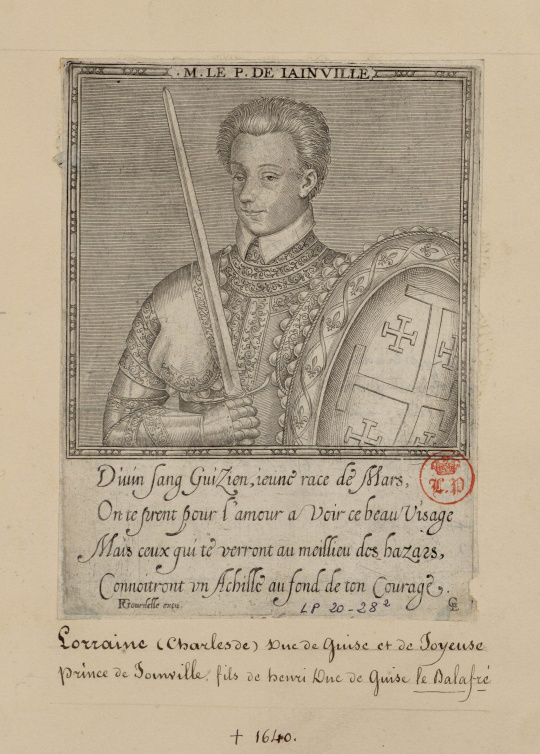 · M. LE P. DE IAINVILLE
D'uün sang GuiZien, ieune race de Mars,
On te prent pour l'amour a Voir ce beau Visage
Mais ceux qui te verront au meillieu des hazars,
Connoitront vn Achille au fond de ton Courage.
L.P
Gourdelle excu.
LP 20-28²
Lorraine (Charles de) Duc de Guise et de Joyeuse
prince de Joinville, fils de henri Duc de Guise le Balafré
† 1640.